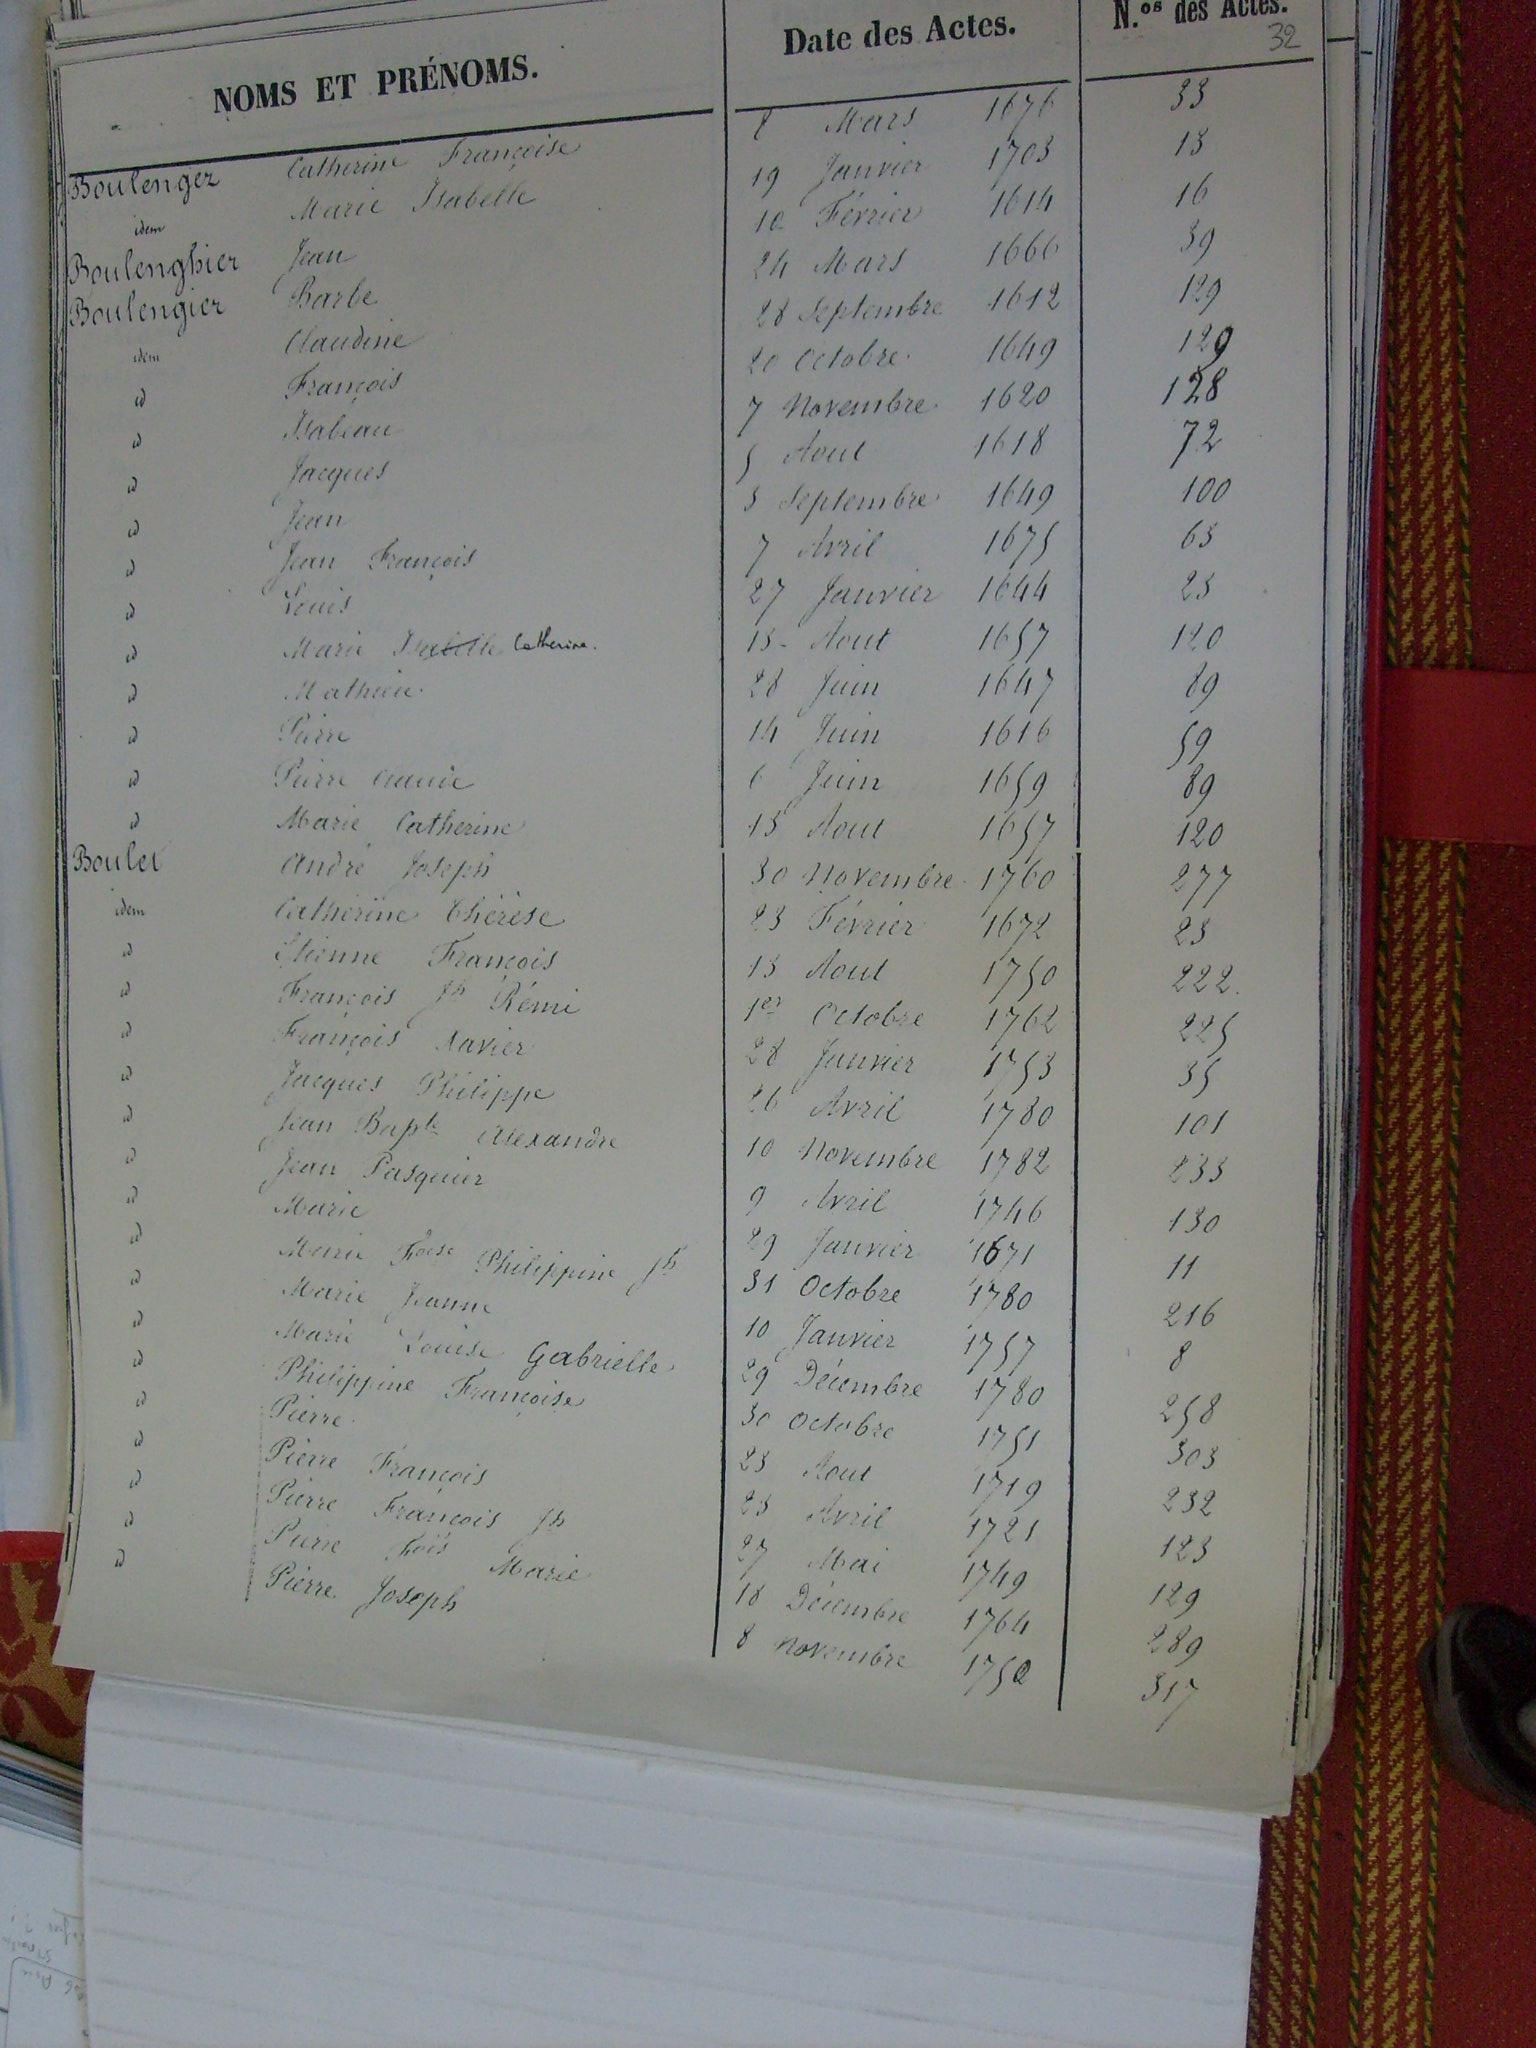 NOMS ET PRÉNOMS. Date des Actes. N.os des Actes.
32
Boulenger Catherine Françoise 8 Mars 1676 33
idem Marie Isabelle 19 Janvier 1703 13
Boulenghier Jean 10 Février 1614 16
Boulengier Barbe 24 Mars 1666 39
idem Claudine 28 Septembre 1612 129
id François 20 Octobre 1649 129
id Isabeau 7 Novembre 1620 128
id Jacques 5 Aout 1618 72
id Jean 3 Septembre 1649 100
id Jean François 7 Avril 1675 63
id Louis 27 Janvier 1644 23
id Marie Isabelle Catherine. 13 Aout 1657 120
id Mathieu 28 Juin 1647 89
id Pierre 14 Juin 1616 59
id Pierre 6 Juin 1659 89
id Marie Catherine 13 Aout 1657 120
Boulet André Joseph 30 Novembre 1760 277
idem Catherine Thérèse 23 Février 1672 23
id Etienne François 13 Aout 1750 222.
id François Jh Rémi 1er Octobre 1762 225
id François Xavier 28 Janvier 1753 35
id Jacques Philippe 26 Avril 1780 101
id Jean Bapte Alexandre 10 Novembre 1782 233
id Jean Pasquier 9 Avril 1746 130
id Marie 29 Janvier 1671 11
id Marie Foise Philippine Jh 31 Octobre 1780 216
id Marie Jeanne 10 Janvier 1757 8
id Marie Louise Gabrielle 29 Décembre 1780 258
id Philippine Françoise 30 Octobre 1751 303
id Pierre 23 Aout 1719 232
id Pierre François 23 Avril 1721 123
id Pierre François Jh 27 Mai 1749 129
id Pierre Fois Marie 18 Décembre 1764 289
id Pierre Joseph 8 Novembre 1750 317